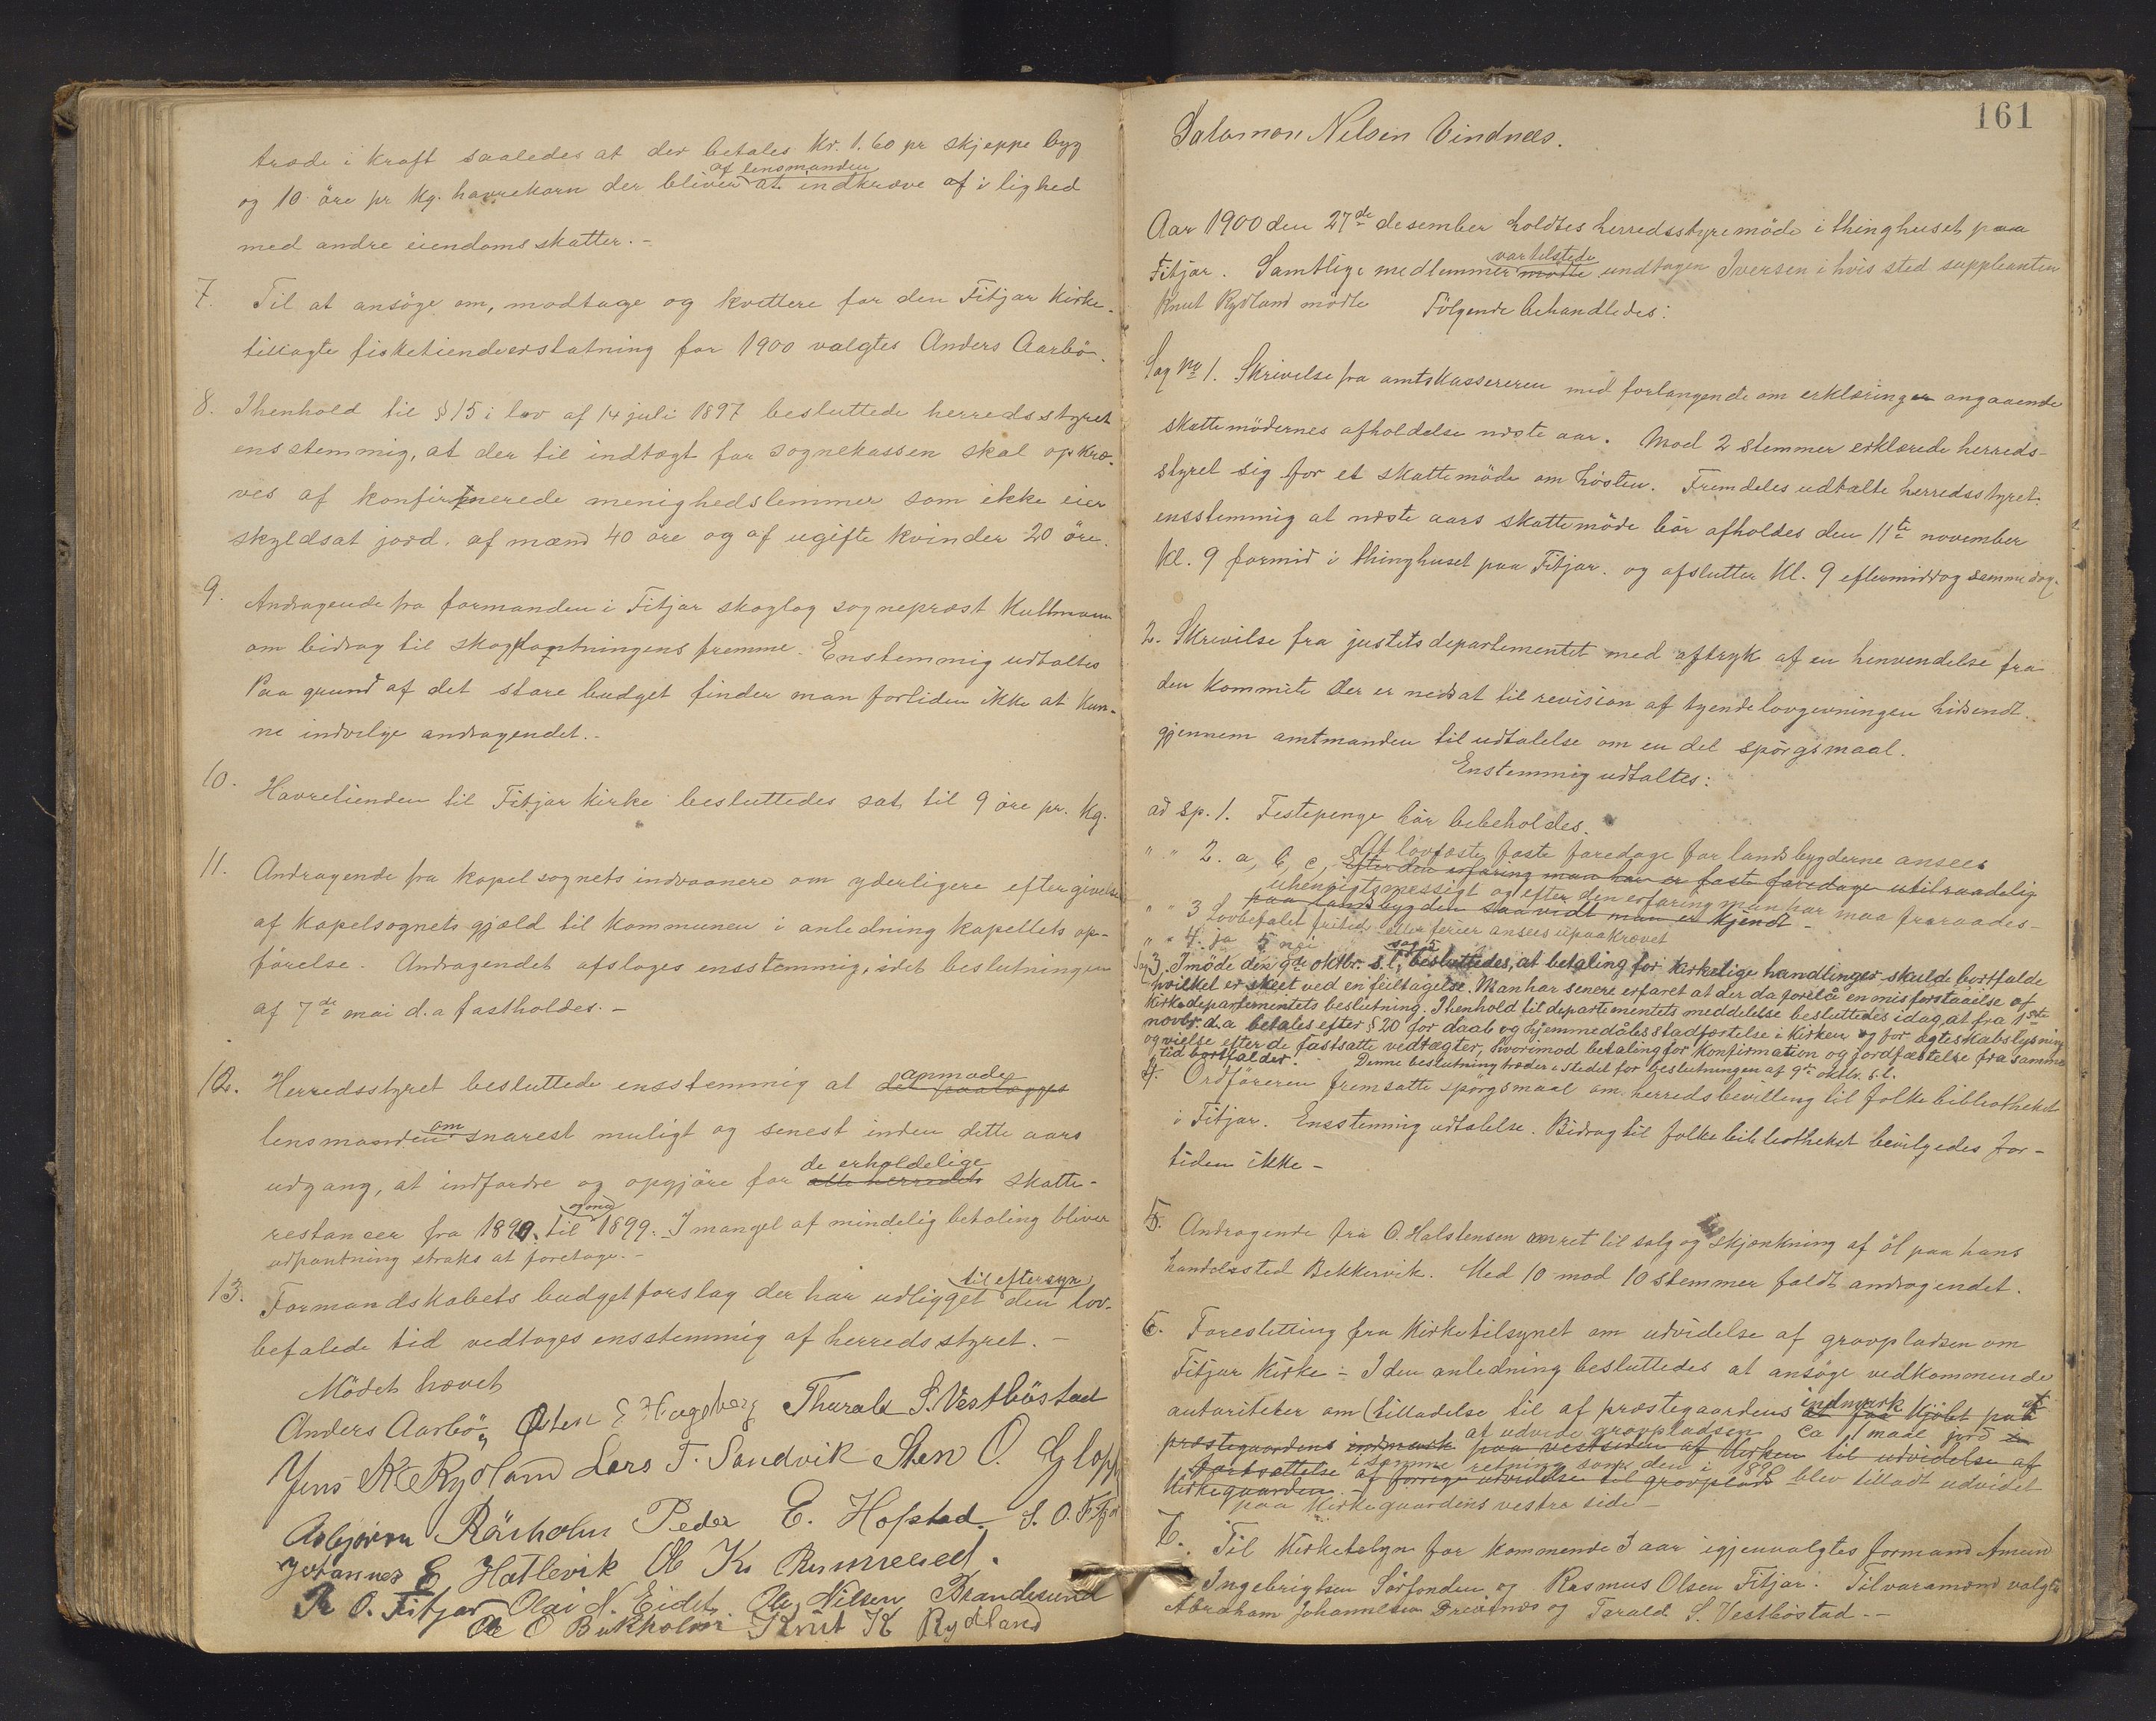 træde i kraft saaledes at der betales Kr. 1.60 pr skjeppe byg
og 10 öre pr Kg. havrekorn der bliver af lensmanden at indkræve af i lighed
med andre eiendomsskatter. -
7. Til at ansöge om, modtage og kvittere for den Fitjar Kirke-
tillagte fisketiendeerstatning for 1900 valgtes Anders Aarbö.
8. I henhold til § 15 i lov af 14 juli 1897 besluttede herredsstyret
ensstemmig, at der til indtægt for sognekassen skal opkræ-
ves af konfirmerede menighedslemmer som ikke eier
skyldsat jord. af mænd 40 öre og af ugifte kvinder 20 öre.
9. Andragende fra formanden i Fitjar skoglag sognepræst Kullmann
om bidrag til skogplantningens fremme. Enstemmig udtaltes
Paa grund af det store budget finder man fortiden ikke at kun-
ne indvilge andragendet. -
10. Havretienden til Fitjar Kirke besluttedes sat til 9 öre pr. Kg.
11. Andragende fra Kapelsognets indvaanere om yderligere eftergivelse
af Kapelsognets gjæld til Kommunen i anledning kapellets op-
förelse. Andragendet afsloges ensstemmig, idet beslutningen
af 7de mai d.a fastholdes. -
12. Herredsstyret besluttede ensstemmig at det paalægges anmode
lensmanden om snarest muligt og senest inden dette aars
udgang, at indfordre og opgjöre for alle herredets de erholdelige skatte-
restancer fra 1890 til og med 1899. I mangel af mindelig betaling bliver
udpantning straks at foretage. -
13. Formandskabets budgetforslag der har udligget til eftersyn den lov-
befalede tid vedtoges ensstemmig af herredsstyret. -
Mödet hævet
Anders Aarbö, Østen E Hageberg Tharald S. Vestböstad
Jens K Rydland Lars T. Sandvik Sten O. Glopp
Asbjörn Rörholm Peder E. Hofstad S. O. Fitjar
Johannes E Hatlevik Ole Ks Rimmereid.
R O. Fitjar Olai N. Eidet Ole Nilsen Brandesund
Ole O Bukholm Knut K Rydland
161
Salamon Nelsen Vindnæs.
Aar 1900 den 27de desember holdtes herredsstyremöde i thinghuset paa
Fitjar. Samtlige medlemmer mödte var tilstede undtagen Iversen i hvis sted suppleanten
Knut Rydland mödte Fölgende behandledes:
Sag No 1. Skrivelse fra amtskassereren med forlangende om erklæringer angaaende
skattemödernes afholdelse næste aar. Mod 2 stemmer erklærede herreds-
styret sig for et skattemöde om hösten. Fremdeles udtalte herredsstyret
ensstemmig at næste aars skattemöde bör afholdes den 11te november
Kl. 9 formid i thinghuset paa Fitjar. og afslutter Kl. 9 eftermiddag samme dag.
2. Skrivelse fra justitsdepartementet med aftryk af en henvendelse fra
den Kommite der er nedsat til revision af tyendelovgivningen hidsendt
gjennem amtmanden til udtalelse om en del spörgsmaal.
Enstemmig udtaltes:
ad sp. 1. Festepenge bör bibeholdes.
" " 2. a, b, c, At lovfæste faste faredage for landsbygderne ansees
Efter den erfaring man har er faste faredage utilraadelig
uhensigtsmessigt og efter den erfaring man har maa fraraades -
paa landsbygden saavidt man er kjendt -
" " 3 Lovbefalet fritid eller ferier ansees upaakrævet
" " 4. ja 5 nei
Sag 3. I möde den 9de oktbr. s.l. sag 5 besluttedes, at betaling for kirkelige handlinger skulde bortfalde
hvilket er skeet ved en feiltagelse. Man har senere erfaret at der da forelå en misforstaaelse af
Kirkedepartementets beslutning. I henhold til departementets meddelelse besluttedes idag, at fra 1ste
novbr. d.a betales efter § 20 for daab og hjemmedåbs stadfæstelse i Kirken og for ægteskabslysning
og vielse efter de fastsatte vedtægter, hvorimod betaling for Konfirmation og jordfæstelse fra samme
tid bortfalder. Denne beslutning træder i stedet for beslutningen af 9de oktbr. s.l.
4. Ordföreren fremsatte spörgsmaal om herredsbevilling til folkebibliotheket
i Fitjar. Ensstemmig udtalelse. Bidrag til folkebibliotheket bevilgedes for-
tiden ikke -
5. Andragende fra O. Halstensen om ret til salg og skjænkning af öl paa hans
handelssted Bekkervik. Med 10 mod 10 stemmer faldt andragendet.
6. Forestilling fra Kirketilsynet om udvidelse af gravpladsen om
Fitjar Kirke - I den anledning besluttedes at ansöge vedkommende
autoriteter om (tilladelse til af præstegaardens indmark at faa kjöbt paa at
at udvide gravpladsen ca 1 maal jord
præstegaardens indmark paa vestsiden af kirken til udvidelse af
i samme retning som den i 189 blev tilladt udvidet
Kirkegaarden fortsættelse af forrige udvidelse til gravplads
paa Kirkegaardens vestre side -
7. Til Kirketilsyn for kommende 3 aar igjenvalgtes formand Amund
Ingebrigtsen Sörfonden og Rasmus Olsen Fitjar. Til varamænd valgtes
Abraham Johannesen Dreinæs og Tarald S. Vestböstad. -